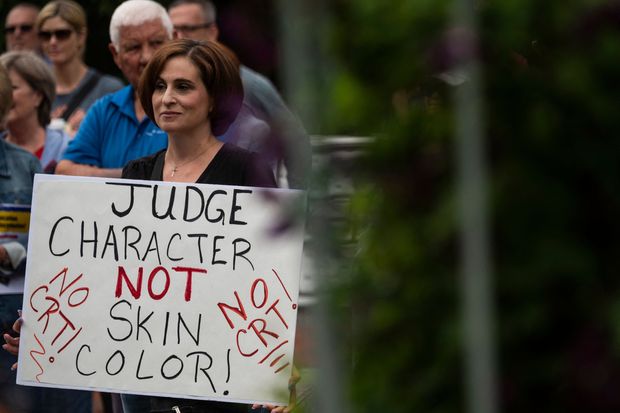 JUDGE
CHARACTER
NOT
SKIN
COLOR!
NO
CRT!
NO!
CRT!